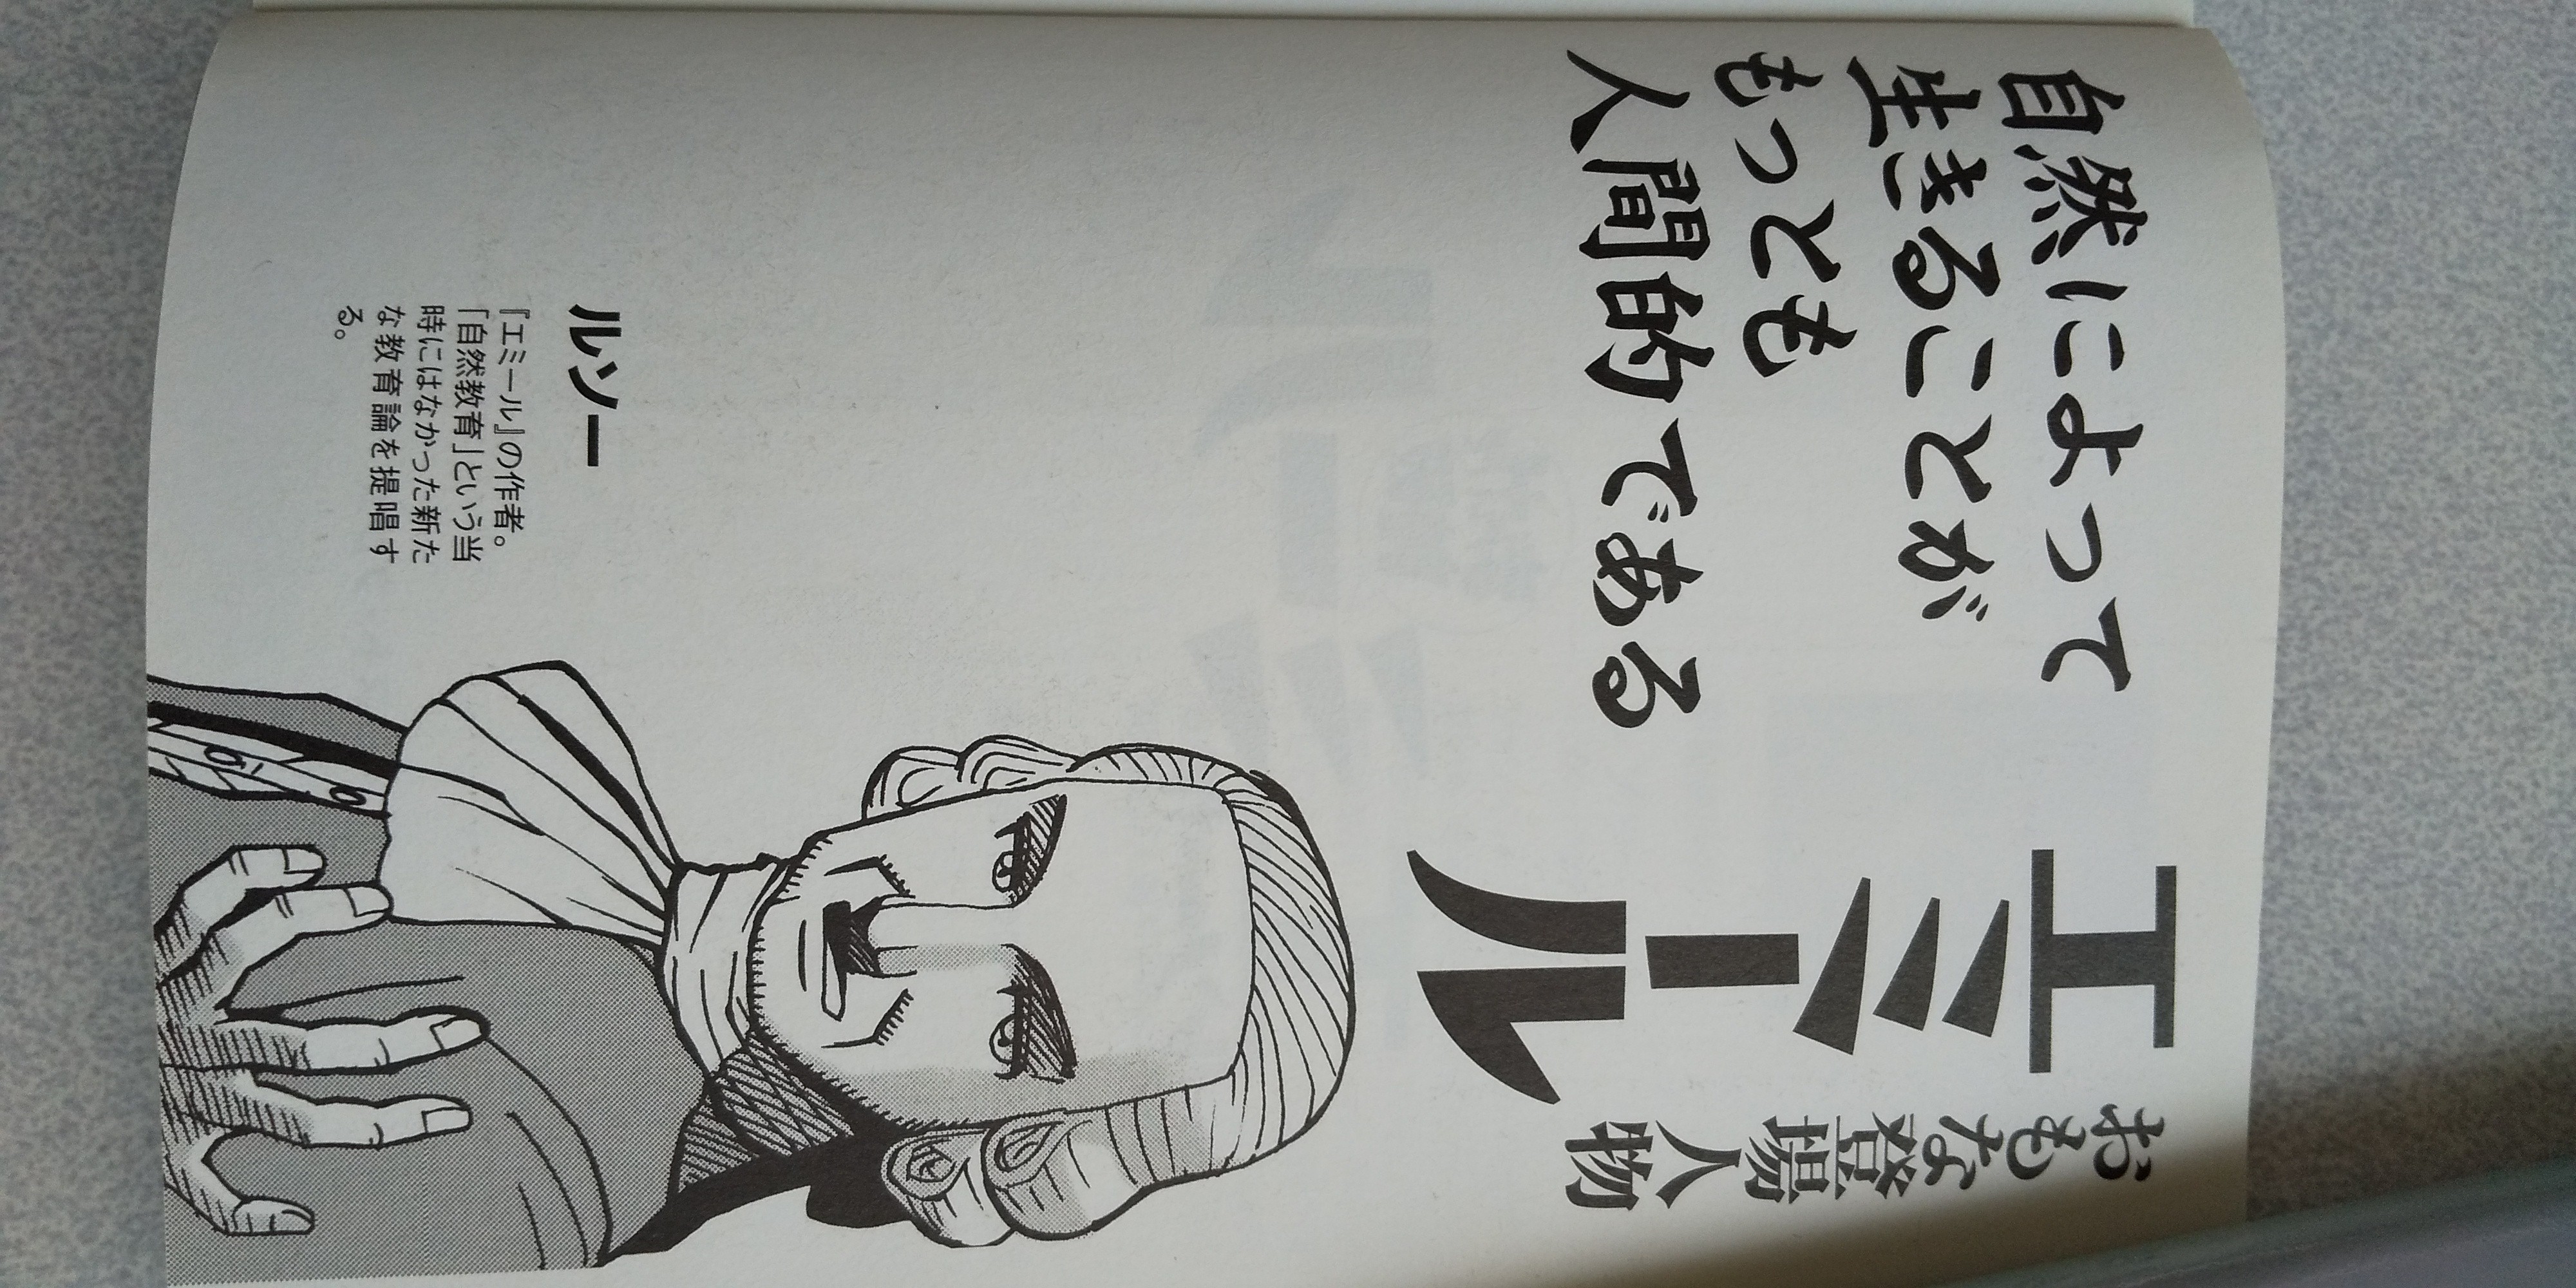 自然によって
生きることが
もっとも
人間的である
エミール
おもな登場人物
ルソー
『エミール』の作者。
「自然教育」という当
時にはなかった新た
な教育論を提唱す
る。